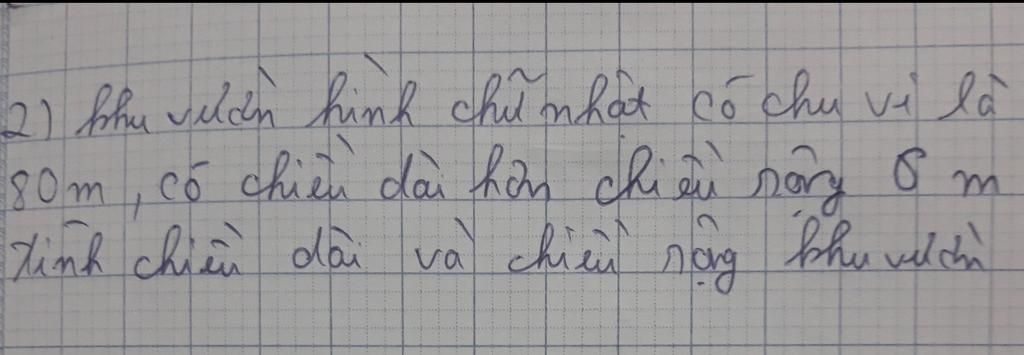 2) khu vườn hình chữ nhật có chu vi là
80m, có chiều dài hơn chiều rộng 6 m
tính chiều dài và chiều rộng khu vườn